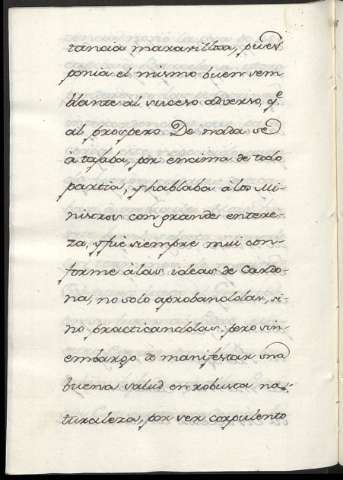 tancia maravillta, pues
ponia el mismo buen sem-
blante al suceso adverso, q.e
al prospero. De nada se
atajaba, por encima de todo
partia, y hablaba á los Mi-
nistros con grande entere-
za, y fue siempre mui con-
forme á las ideas de Cardo-
na, no solo aprobandolas, si-
no practicandolas: pero sin
embargo de manifestar una
buena salud en robusta na-
turaleza, por ser corpulento